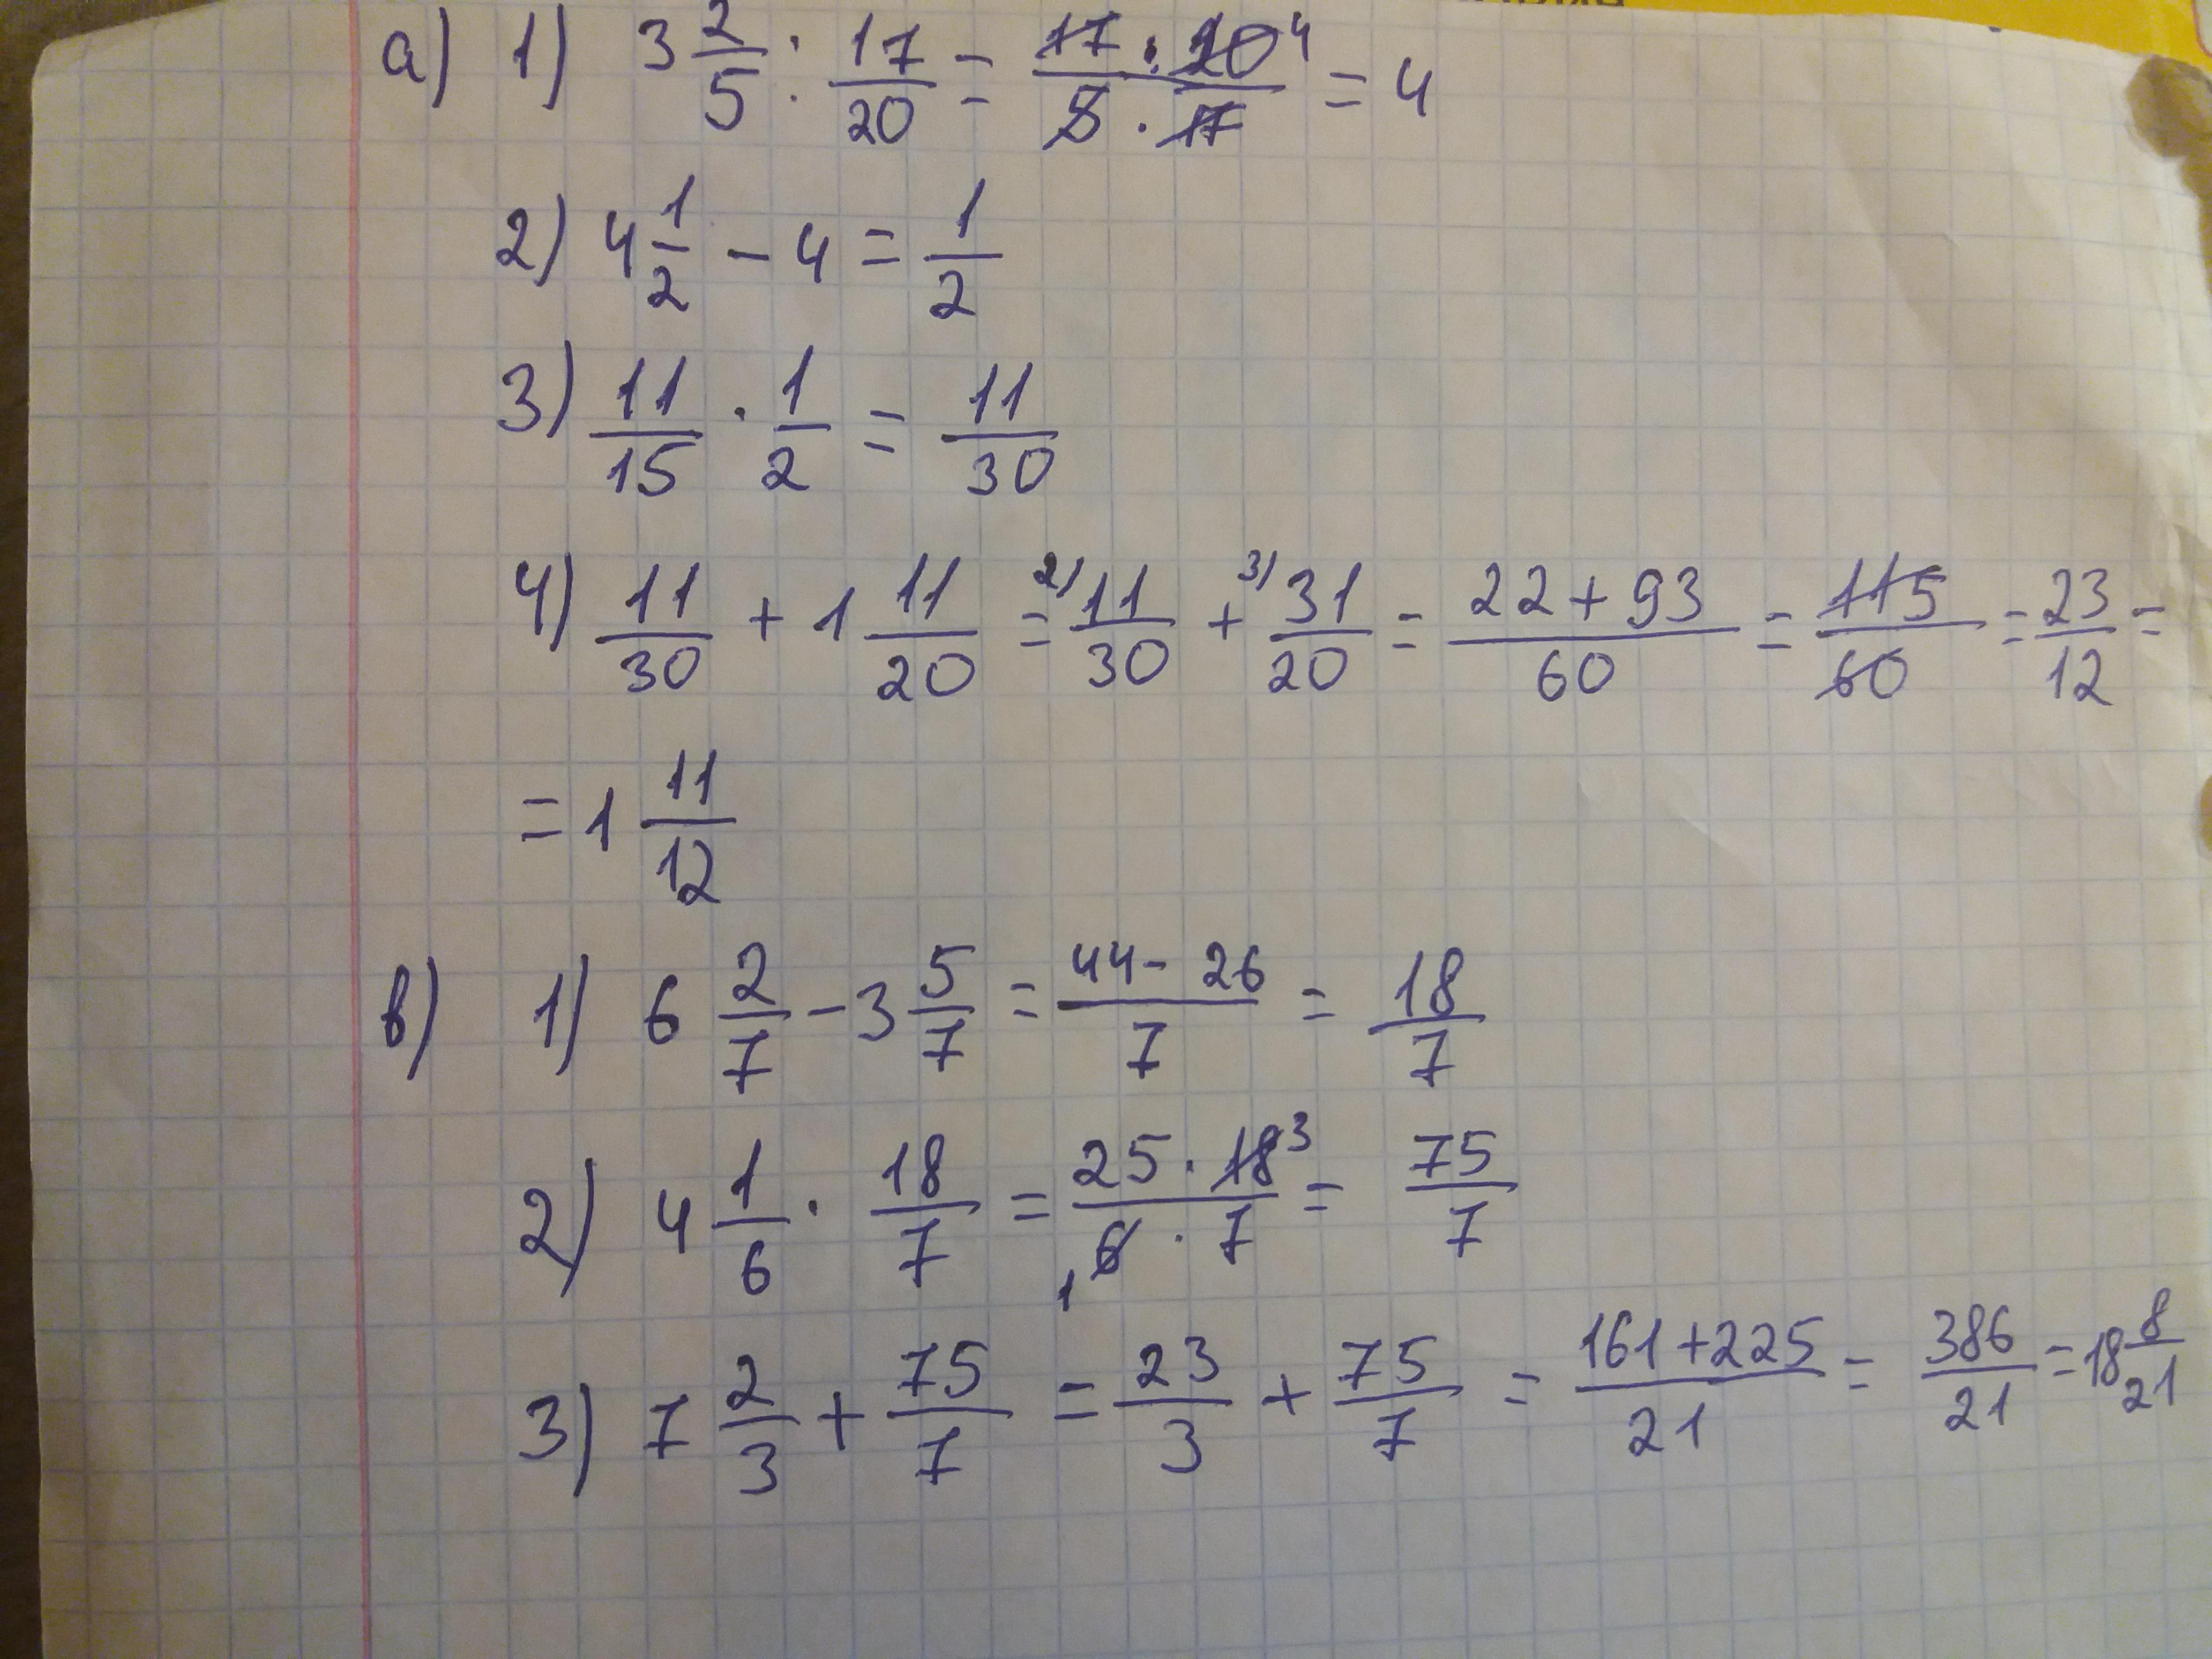 а) 1) 3 2/5 : 17/20 = 17 · 20 4 / 5 · 17 = 4
2) 4 1/2 - 4 = 1/2
3) 11/15 · 1/2 = 11/30
4) 11/30 + 1 11/20 = 2) 11/30 + 3) 31/20 = 22 + 93 / 60 = 115/60 = 23/12 =
= 1 11/12
в) 1) 6 2/7 - 3 5/7 = 44 - 26 / 7 = 18/7
2) 4 1/6 · 18/7 = 25 · 18 3 / 1 6 · 7 = 75/7
3) 7 2/3 + 75/7 = 23/3 + 75/7 = 161 + 225 / 21 = 386/21 = 18 8/21